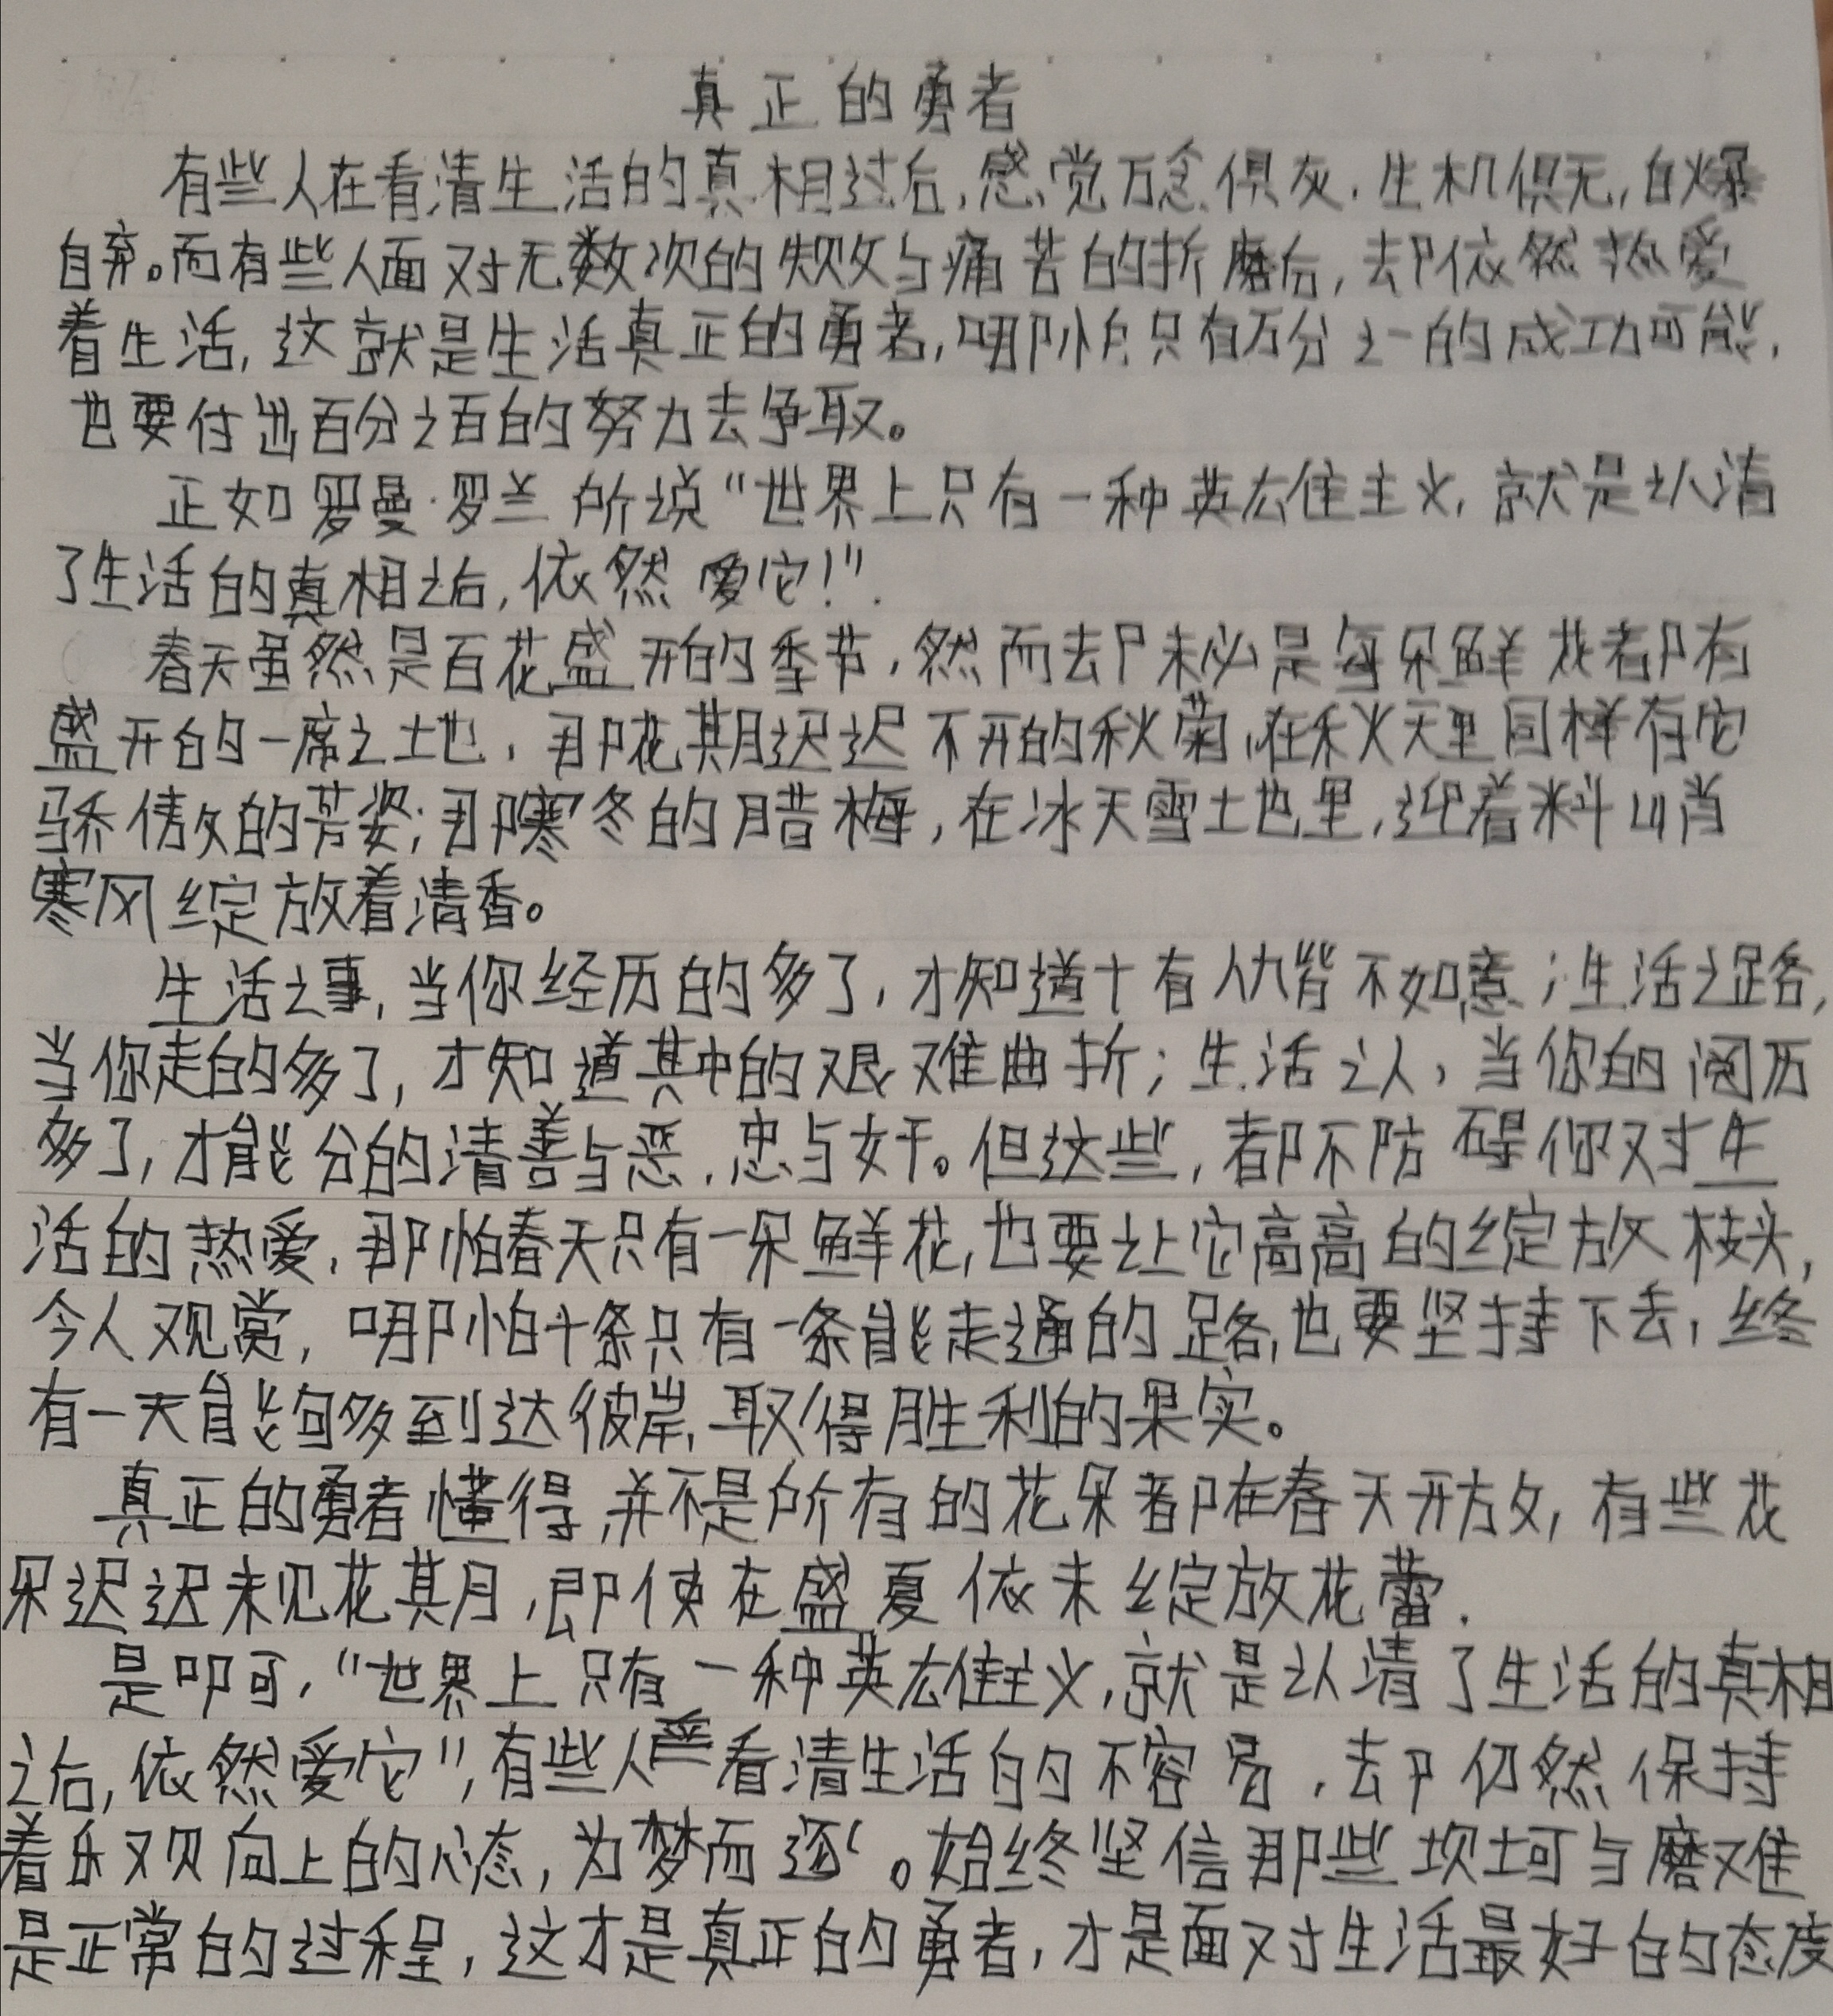 真正的勇者
有些人在看清生活的真相过后,感觉万念俱灰.生机俱无,自爆
自弃。而有些人面对无数次的失败与痛苦的折磨后,却依然热爱
着生活,这就是生活真正的勇者,哪怕只有万分之一的成功可能,
也要付出百分之百的努力去争取。
正如罗曼·罗兰所说"世界上只有一种英雄主义,就是认清
了生活的真相之后,依然爱它!".
春天虽然是百花盛开的季节,然而却未必是每朵鲜花都有
盛开的一席之地,那花期迟迟不开的秋菊,在秋天里同样有它
骄傲的芳姿;那寒冬的腊梅,在冰天雪地里,迎着料峭
寒风绽放着清香。
生活之事,当你经历的多了,才知道十有八九皆不如意;生活之路,
当你走的多了,才知道其中的艰难曲折;生活之人,当你的阅历
多了,才能分的清善与恶,忠与奸。但这些,都不防碍你对生
活的热爱,那怕春天只有一朵鲜花,也要让它高高的绽放枝头,
令人观赏,哪怕十条只有一条能走通的路,也要坚持下去,终
有一天能够到达彼岸,取得胜利的果实。
真正的勇者懂得,并不是所有的花朵都在春天开放,有些花
朵迟迟未见花期,即使在盛夏依未绽放花蕾.
是呀可,"世界上只有一种英雄主义,就是认清了生活的真相
之后,依然爱它",有些人看清生活的不容易,却仍然保持
着乐观向上的心态,为梦而逐。始终坚信那些坝坷与磨难
是正常的过程,这才是真正的勇者,才是面对生活最好的态度